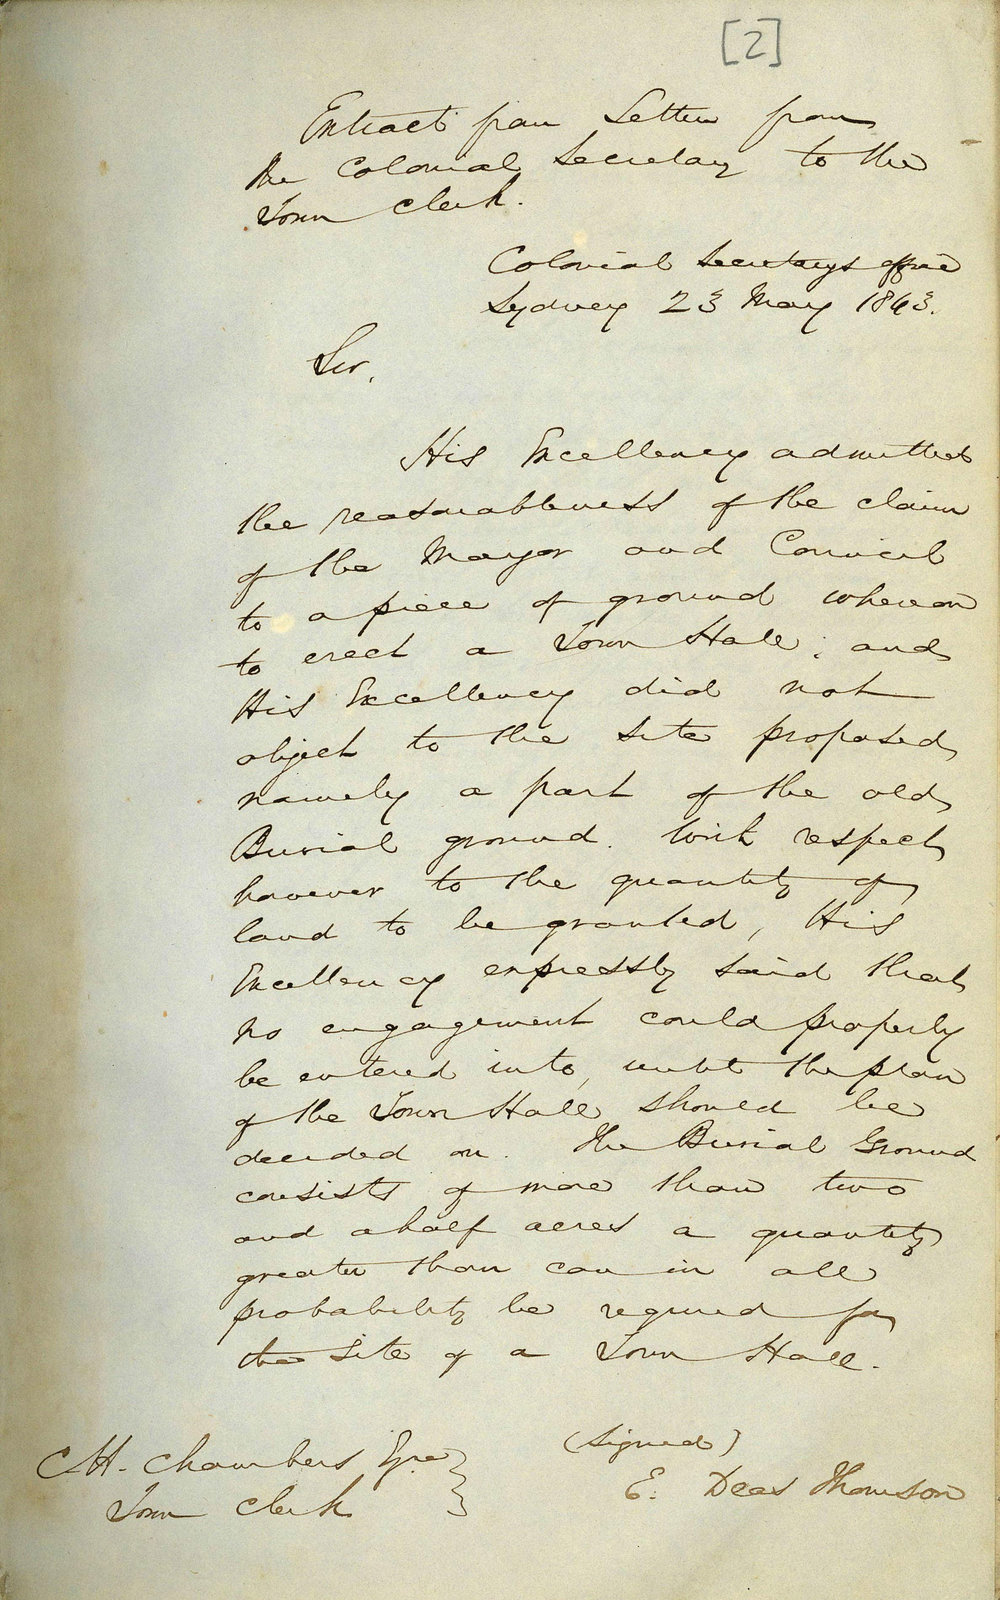 [2]
Extract from Letter from
the Colonial Secretary to the
Town Clerk.
Colonial Secretarys office
Sydney 23 May 1863.
Sir,
His Excellency admitted
the reasonableness of the claim
of the Mayor and Council
to a piece of ground whereon
to erect a Town Hall; and
His Excellency did not
object to the site proposed,
namely a part of the old
Burial ground. With respect
however to the quantity of
land to be granted, His
Excellency expressly said that
no engagement could properly
be entered into, until the plan
of the Town Hall should be
decided on. The Burial Ground
consists of more than two
and a half acres a quantity
greater than can in all
probability be required for
the site of a Town Hall.
(signed)
E. Deas Thomson
C H. Chambers Esqre
Town Clerk